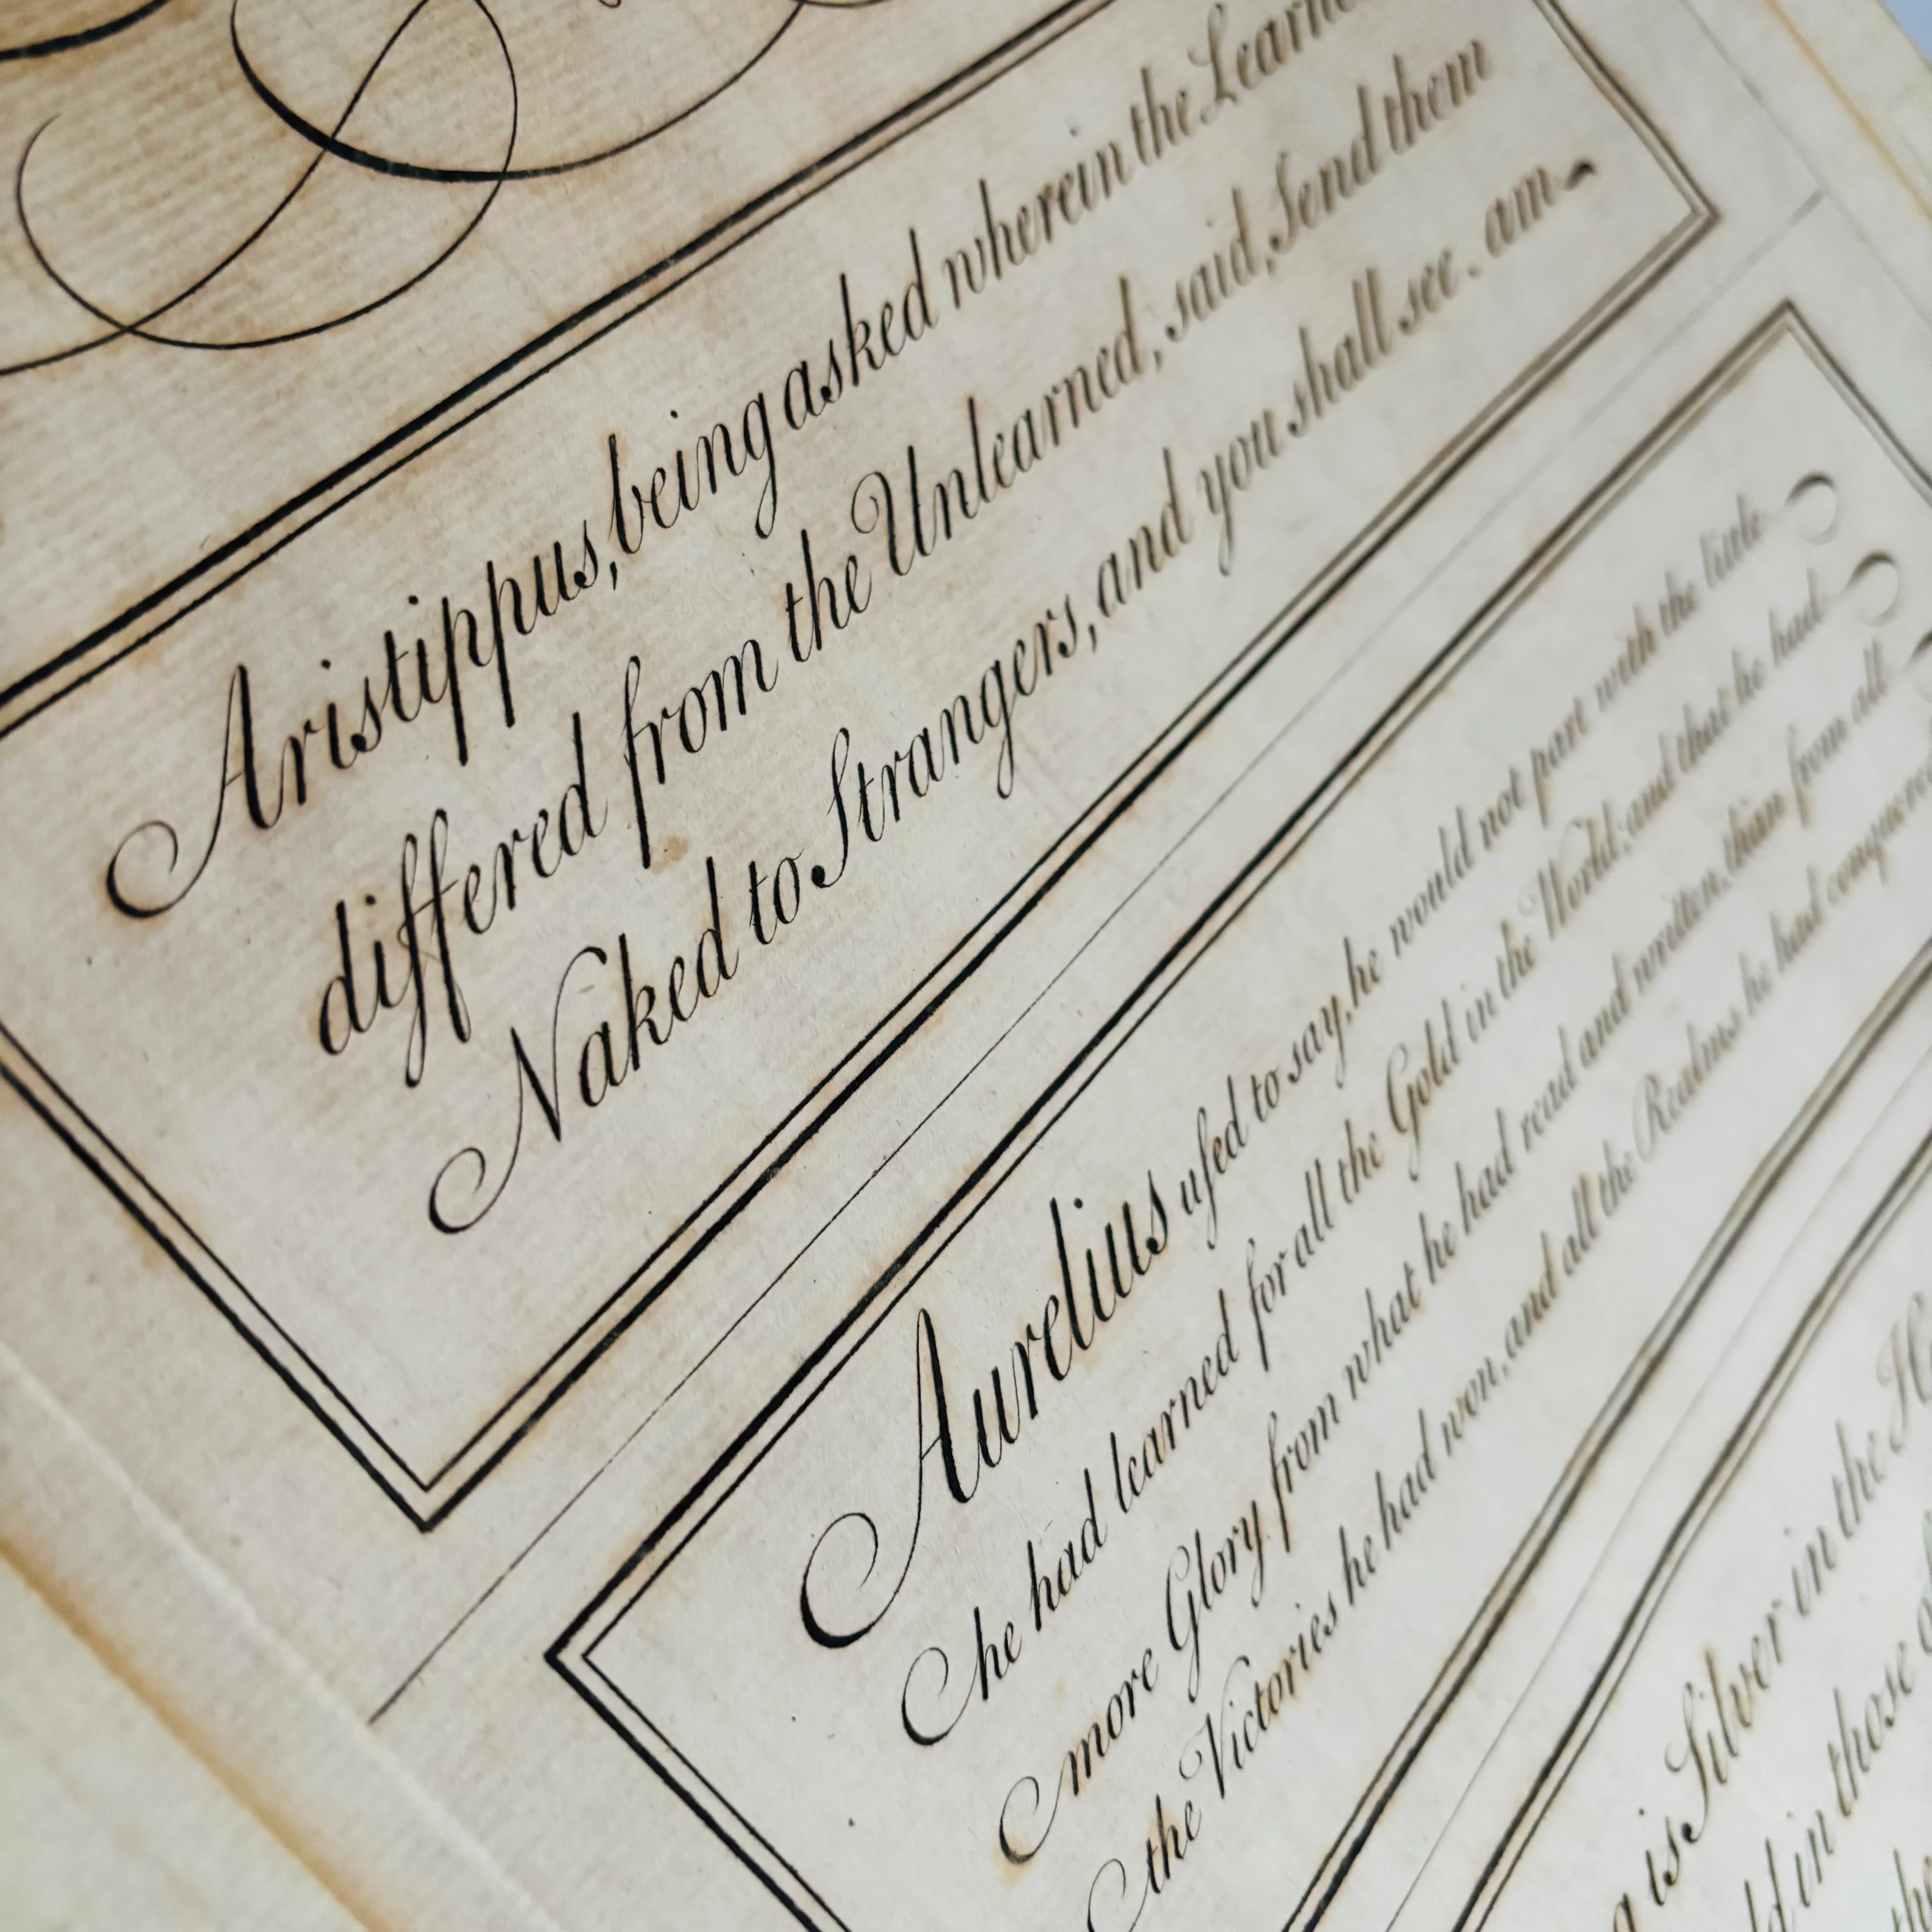 Aristippus, being asked wherein the
differed from the Unlearned, said, Send them
Naked to Strangers, and you shall see. am
Aurelius uſed to say, he would not part with the little
he had learned for all the Gold in the World; and that he had
more Glory from what he had read and written, than from all
the Victories he had won, and all the Realms he had conquered
is Silver in the
in those